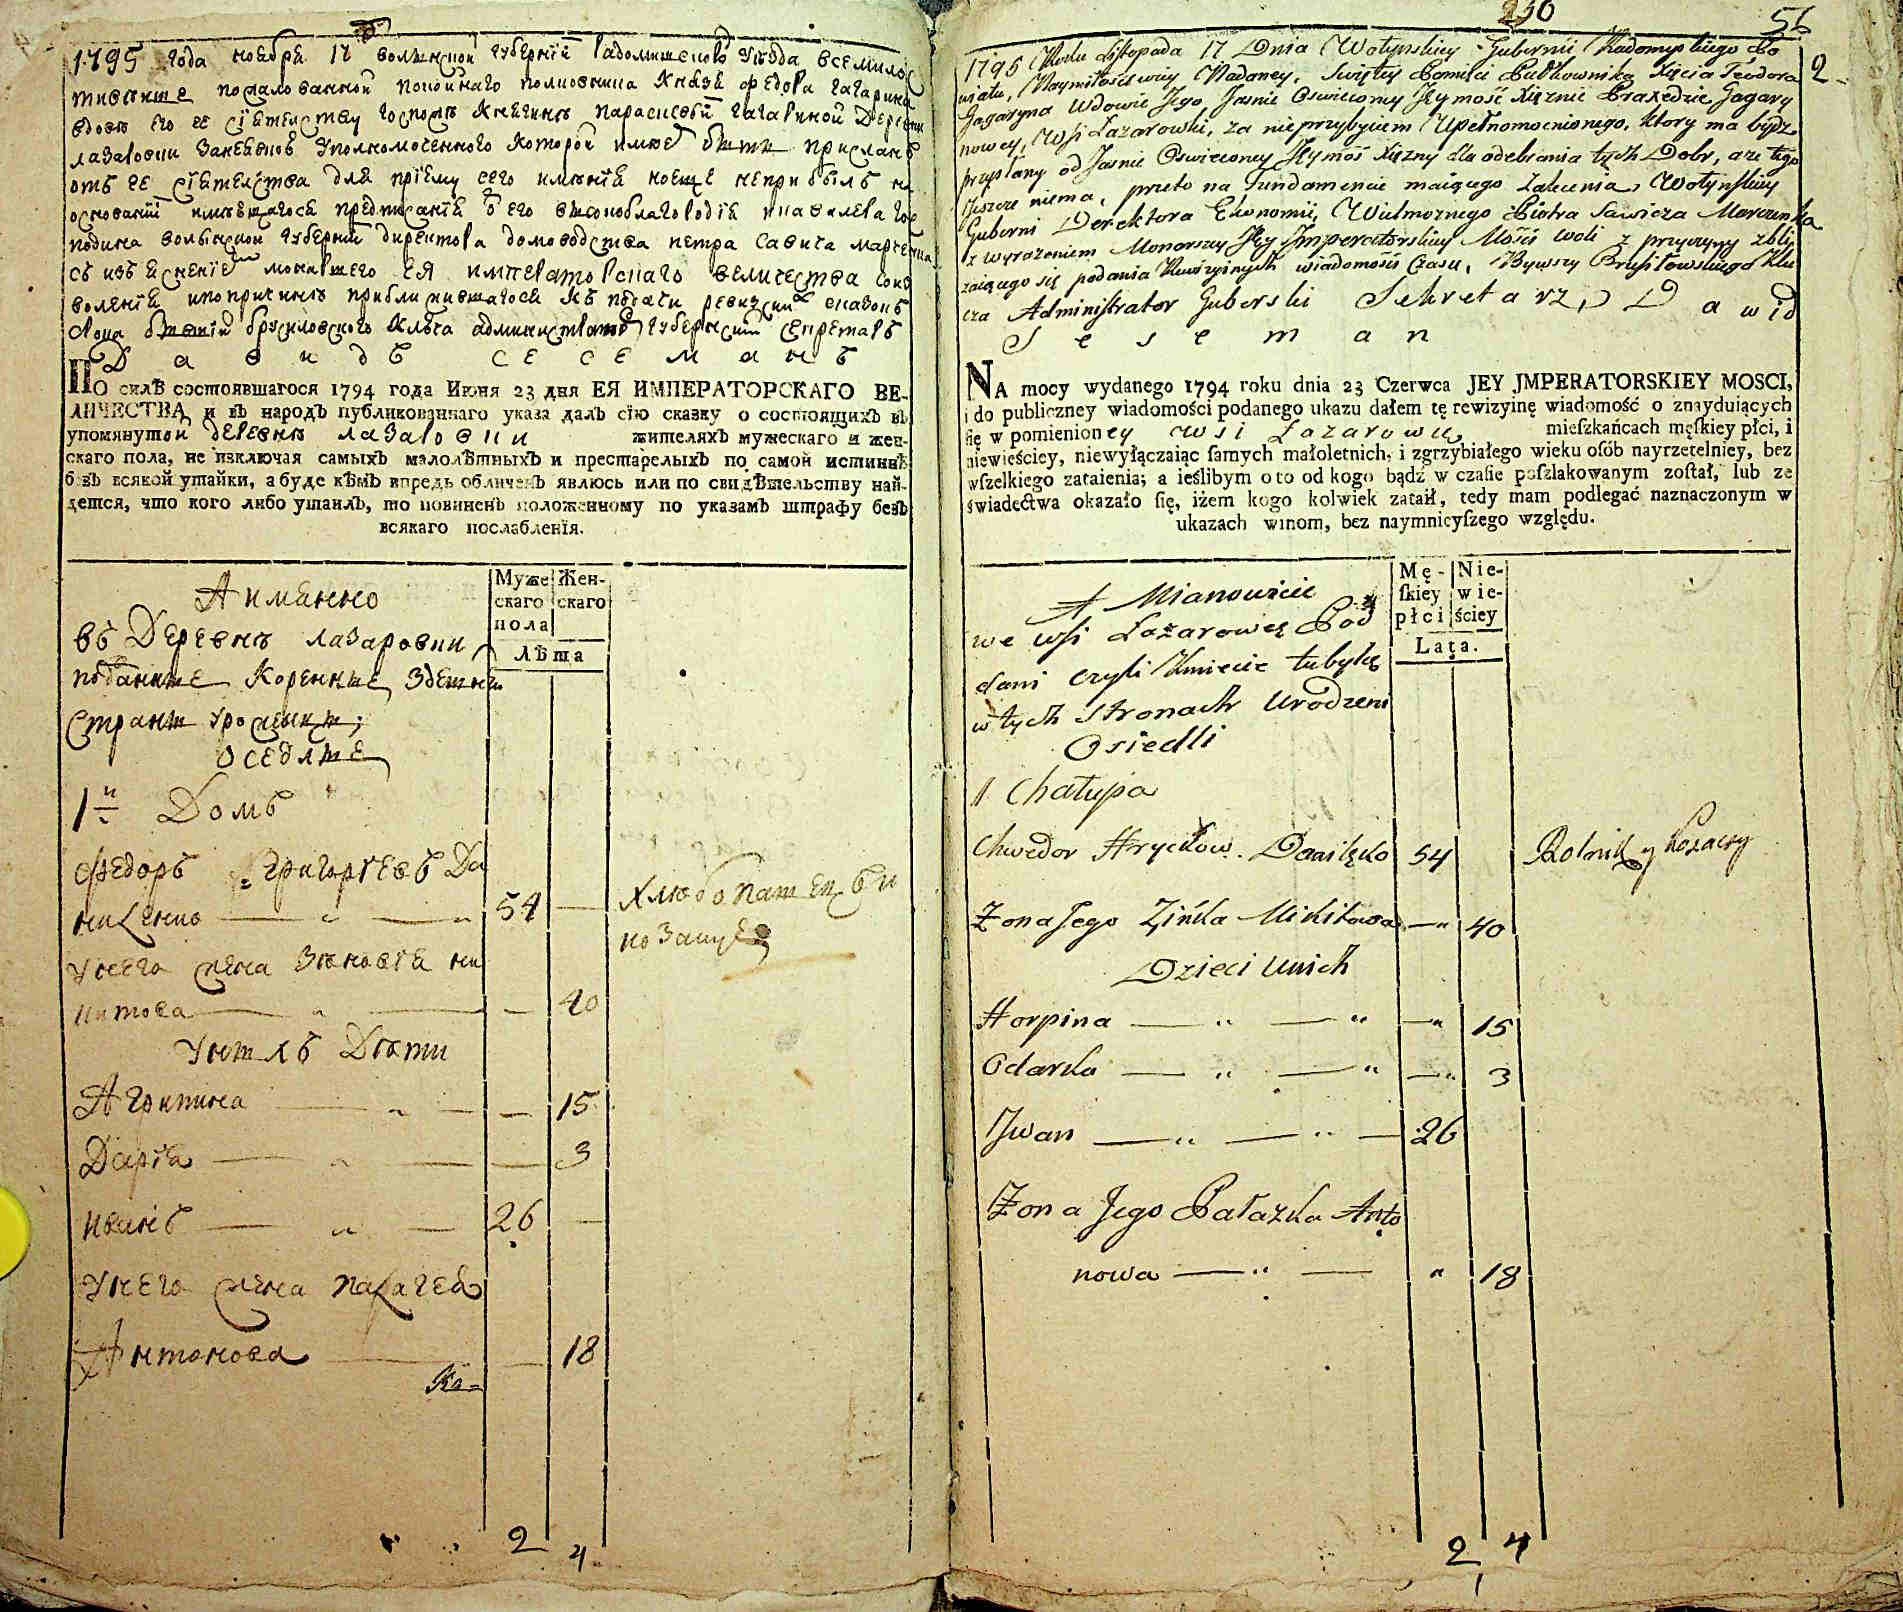 1795 года ноября 17 волынской губернїи Радомышского уѣзда всемилос
тивѣйше пожалованной покойнаго полковника Князя Федора Гагарина
вдовѣ его ее сїятелству госпожѣ Княгинѣ Парасковїи Гагариной Деревни
лазаровки Занебытїемъ Уполномоченного которой имѣетъ быть присланъ
отъ ее сїятелства для прїему сего имѣнїя ноеще неприбылъ на
основанїи имѣвшагося предписанїя его высокоблагородїя кавалера гос
подина волынской губернїи директора домоводства петра савича марченка
съ изъясненїемъ монаршего ЕЯ императорскаго величества соиз
воленїя ипопричинѣ приближившагося къ подачи ревизскихъ сказокъ
Срока бывшїй брусиловского ключа администраторъ губернский секретарь
Давидъ Сесеманъ
ПО силѣ состоявшагося 1794 года Июня 23 дня ЕЯ ИМПЕРАТОРСКАГО ВЕ-
ЛИЧЕСТВА и въ народъ публикованнаго указа далъ сїю сказку о состоящихъ въ
упомянутой деревнѣ лазаровки жителяхъ мужескаго и жен-
скаго пола, не изключая самыхъ малолѣтныхъ и престарелыхъ по самой истиннѣ
безъ всякой утайки, а буде кѣмъ впредь обличенъ явлюсь или по свидѣтельству най-
дется, что кого либо утаилъ, то повиненъ положенному по указамъ штрафу безъ
всякаго послабленїя.
Муже
скаго
пола
Жен-
скаго
лѣта
Аимянно
въ Деревнѣ лазаровки
поданные Коренные Здешнихъ
Странъ Урожденцы;
оседлые
1й Домъ
Федоръ Григорїевъ Да
ниленко — „ — „ 54 —
Хлѣбопашецъ и
козакуетъ
Унего жена Зѣновїя ни
китова — „ — — 40
Унихъ Дѣти
Агрипина — „ — — 15
Дарїя — „ — — 3
иванъ — „ — 26 —
Унего жена палагея
Антонова — — 18
Ко=
2 4
230
51
2
1795 Roku Listopada 17 Dnia Wołynskiey Gubernii Radomyslkiego Po
wiatu, Naymiłościwiey Nadaney, Swiętey Pamięci Pułkownika Xięcia Teodora
Gagaryna Wdowie Jego Jasnie Oswieconey Jeymość Xięznie Praxedzie Gagary
nowey, Wsi Łazarowki, za nieprzybyciem Upełnomocnionego, ktory ma bydz
przysłany od Jasnie Oswieconey Jeymoś Xięzny dla odebrania tych Dobr, aże tego
Jeszcze niema, przeto na Fundamencie maiącego Zalecenia, Wołynskiey
Guberni Derektora Ekonomii, Wielmoznego Piotra Sawicza Marczenka
z wyrażeniem Monarszey Jey Imperatorskiey Mości woli z przyczyny zbli
zaiącego się podania Rewizyinych wiadomośći Czasu, Bywszy Brusiłowskiego Klu
cza Administrator Guberski Sekretarz, Dawid
Seseman
NA mocy wydanego 1794 roku dnia 23 Czerwca JEY JMPERATORSKIEY MOSCI,
i do publiczney wiadomości podanego ukazu dałem tę rewizyinę wiadomość o znayduiących
się w pomienioney wsi Łazarowce mieſzkańcach męſkiey płci, i
niewieściey, niewyłączaiąc ſamych małoletnich, i zgrzybiałego wieku osób nayrzetelniey, bez
wſzelkiego zataienia; a ieślibym o to od kogo bądź w czaſie poſzlakowanym został, lub ze
świadectwa okazało ſię, iżem kogo kolwiek zataił, tedy mam podlegać naznaczonym w
ukazach winom, bez naymnieyſzego względu.
Mę-
ſkiey
płci
Nie-
wie-
ściey
Lata.
A Mianowicie
we wsi Łazarowce Pod
dani czyli Kmiecie tubylcę
w tych Stronach Urodzeni
Osiedli
1 Chałupa
Chwedor Hryckow. Daniłęko 54 Rolnik y Kozaczy
Zona Jego Zińka Mikitowa —„ 40
Dzieci Unich
Horpina — „ — „ —„ 15
Odarka — „ — „ —„ 3
Jwan — „ — „ — 26
Zona Jego Pałazka Anto
nowa — „ — „ 18
2 4